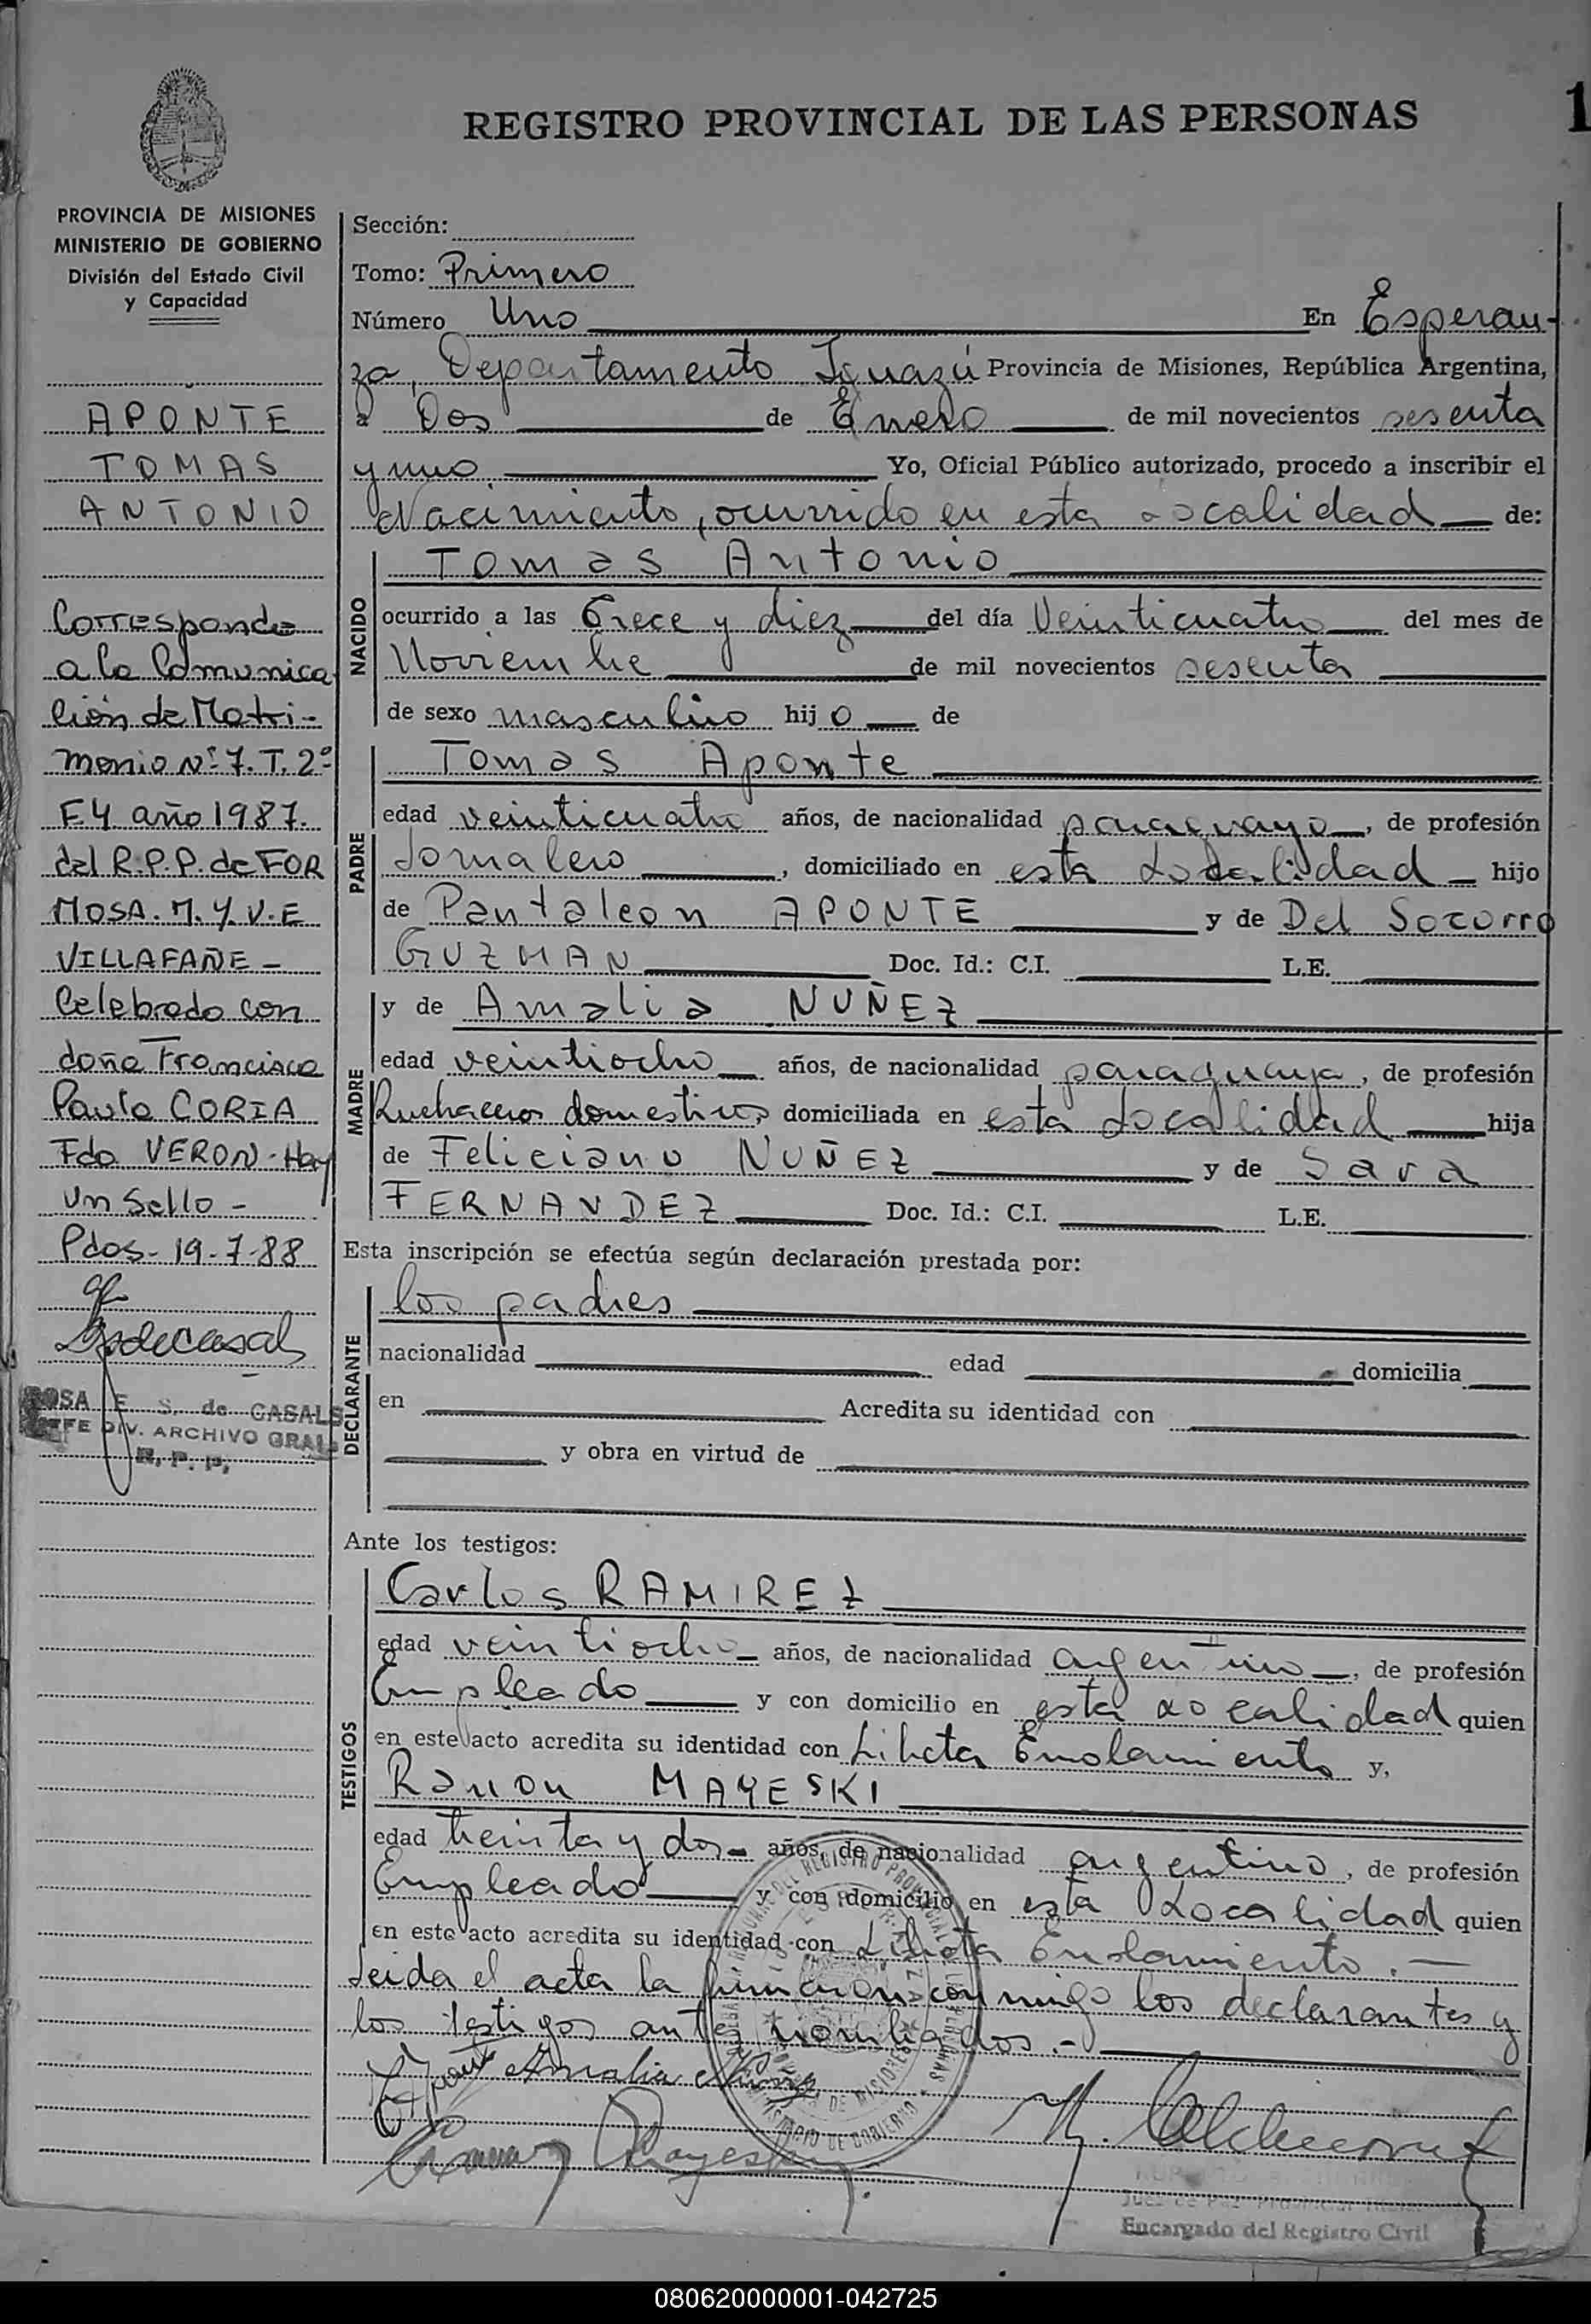 REGISTRO PROVINCIAL DE LAS PERSONAS
1
PROVINCIA DE MISIONES
MINISTERIO DE GOBIERNO
División del Estado Civil
y Capacidad
APONTE
TOMAS
ANTONIO
Corresponde
a la Comunica
ción de Matri-
monio Nº 7. T. 2º
F4 año 1987.
del R.P.P. de FOR
MOSA. M. y V. E
VILLAFAÑE -
Celebrado con
doña Francisca
Paula CORIA
Fdo VERON - Hay
un Sello -
Pdos - 19-7-88
ROSA E. S. de CASALS
JEFE DIV. ARCHIVO GRAL
R. P. P.
Sección:
Tomo: Primero
Número Uno En Esperan-
za, Departamento Iguazú Provincia de Misiones, República Argentina,
a Dos de Enero de mil novecientos sesenta
y uno Yo, Oficial Público autorizado, procedo a inscribir el
Nacimiento, ocurrido en esta Localidad de:
NACIDO
Tomas Antonio
ocurrido a las Trece y diez del día Veinticuatro del mes de
Noviembre de mil novecientos sesenta
de sexo masculino hijo de
PADRE
Tomas Aponte
edad veinticuatro años, de nacionalidad paraguayo, de profesión
Jornalero, domiciliado en esta Localidad hijo
de Pantaleon APONTE y de Del Socorro
GUZMAN Doc. Id.: C.I. L.E.
MADRE
y de Amalia NUÑEZ
edad veintiocho años, de nacionalidad paraguaya, de profesión
Quehaceres domesticos domiciliada en esta Localidad hija
de Feliciano NUÑEZ y de Sara
FERNANDEZ Doc. Id.: C.I. L.E.
Esta inscripción se efectúa según declaración prestada por:
DECLARANTE
los padres
nacionalidad edad domicilia
en Acredita su identidad con
y obra en virtud de
Ante los testigos:
TESTIGOS
Carlos RAMIREZ
edad veintiocho años, de nacionalidad argentino, de profesión
Empleado y con domicilio en esta Localidad quien
en este acto acredita su identidad con Libreta Enrolamiento y,
Ramon MAYESKI
edad treinta y dos años, de nacionalidad argentino, de profesión
Empleado y con domicilio en esta Localidad quien
en este acto acredita su identidad con Libreta Enrolamiento. -
Leida el acta la firman conmigo los declarantes y
los testigos antes nombrados. -
Amalia Nuñez
Encargado del Registro Civil
080620000001-042725